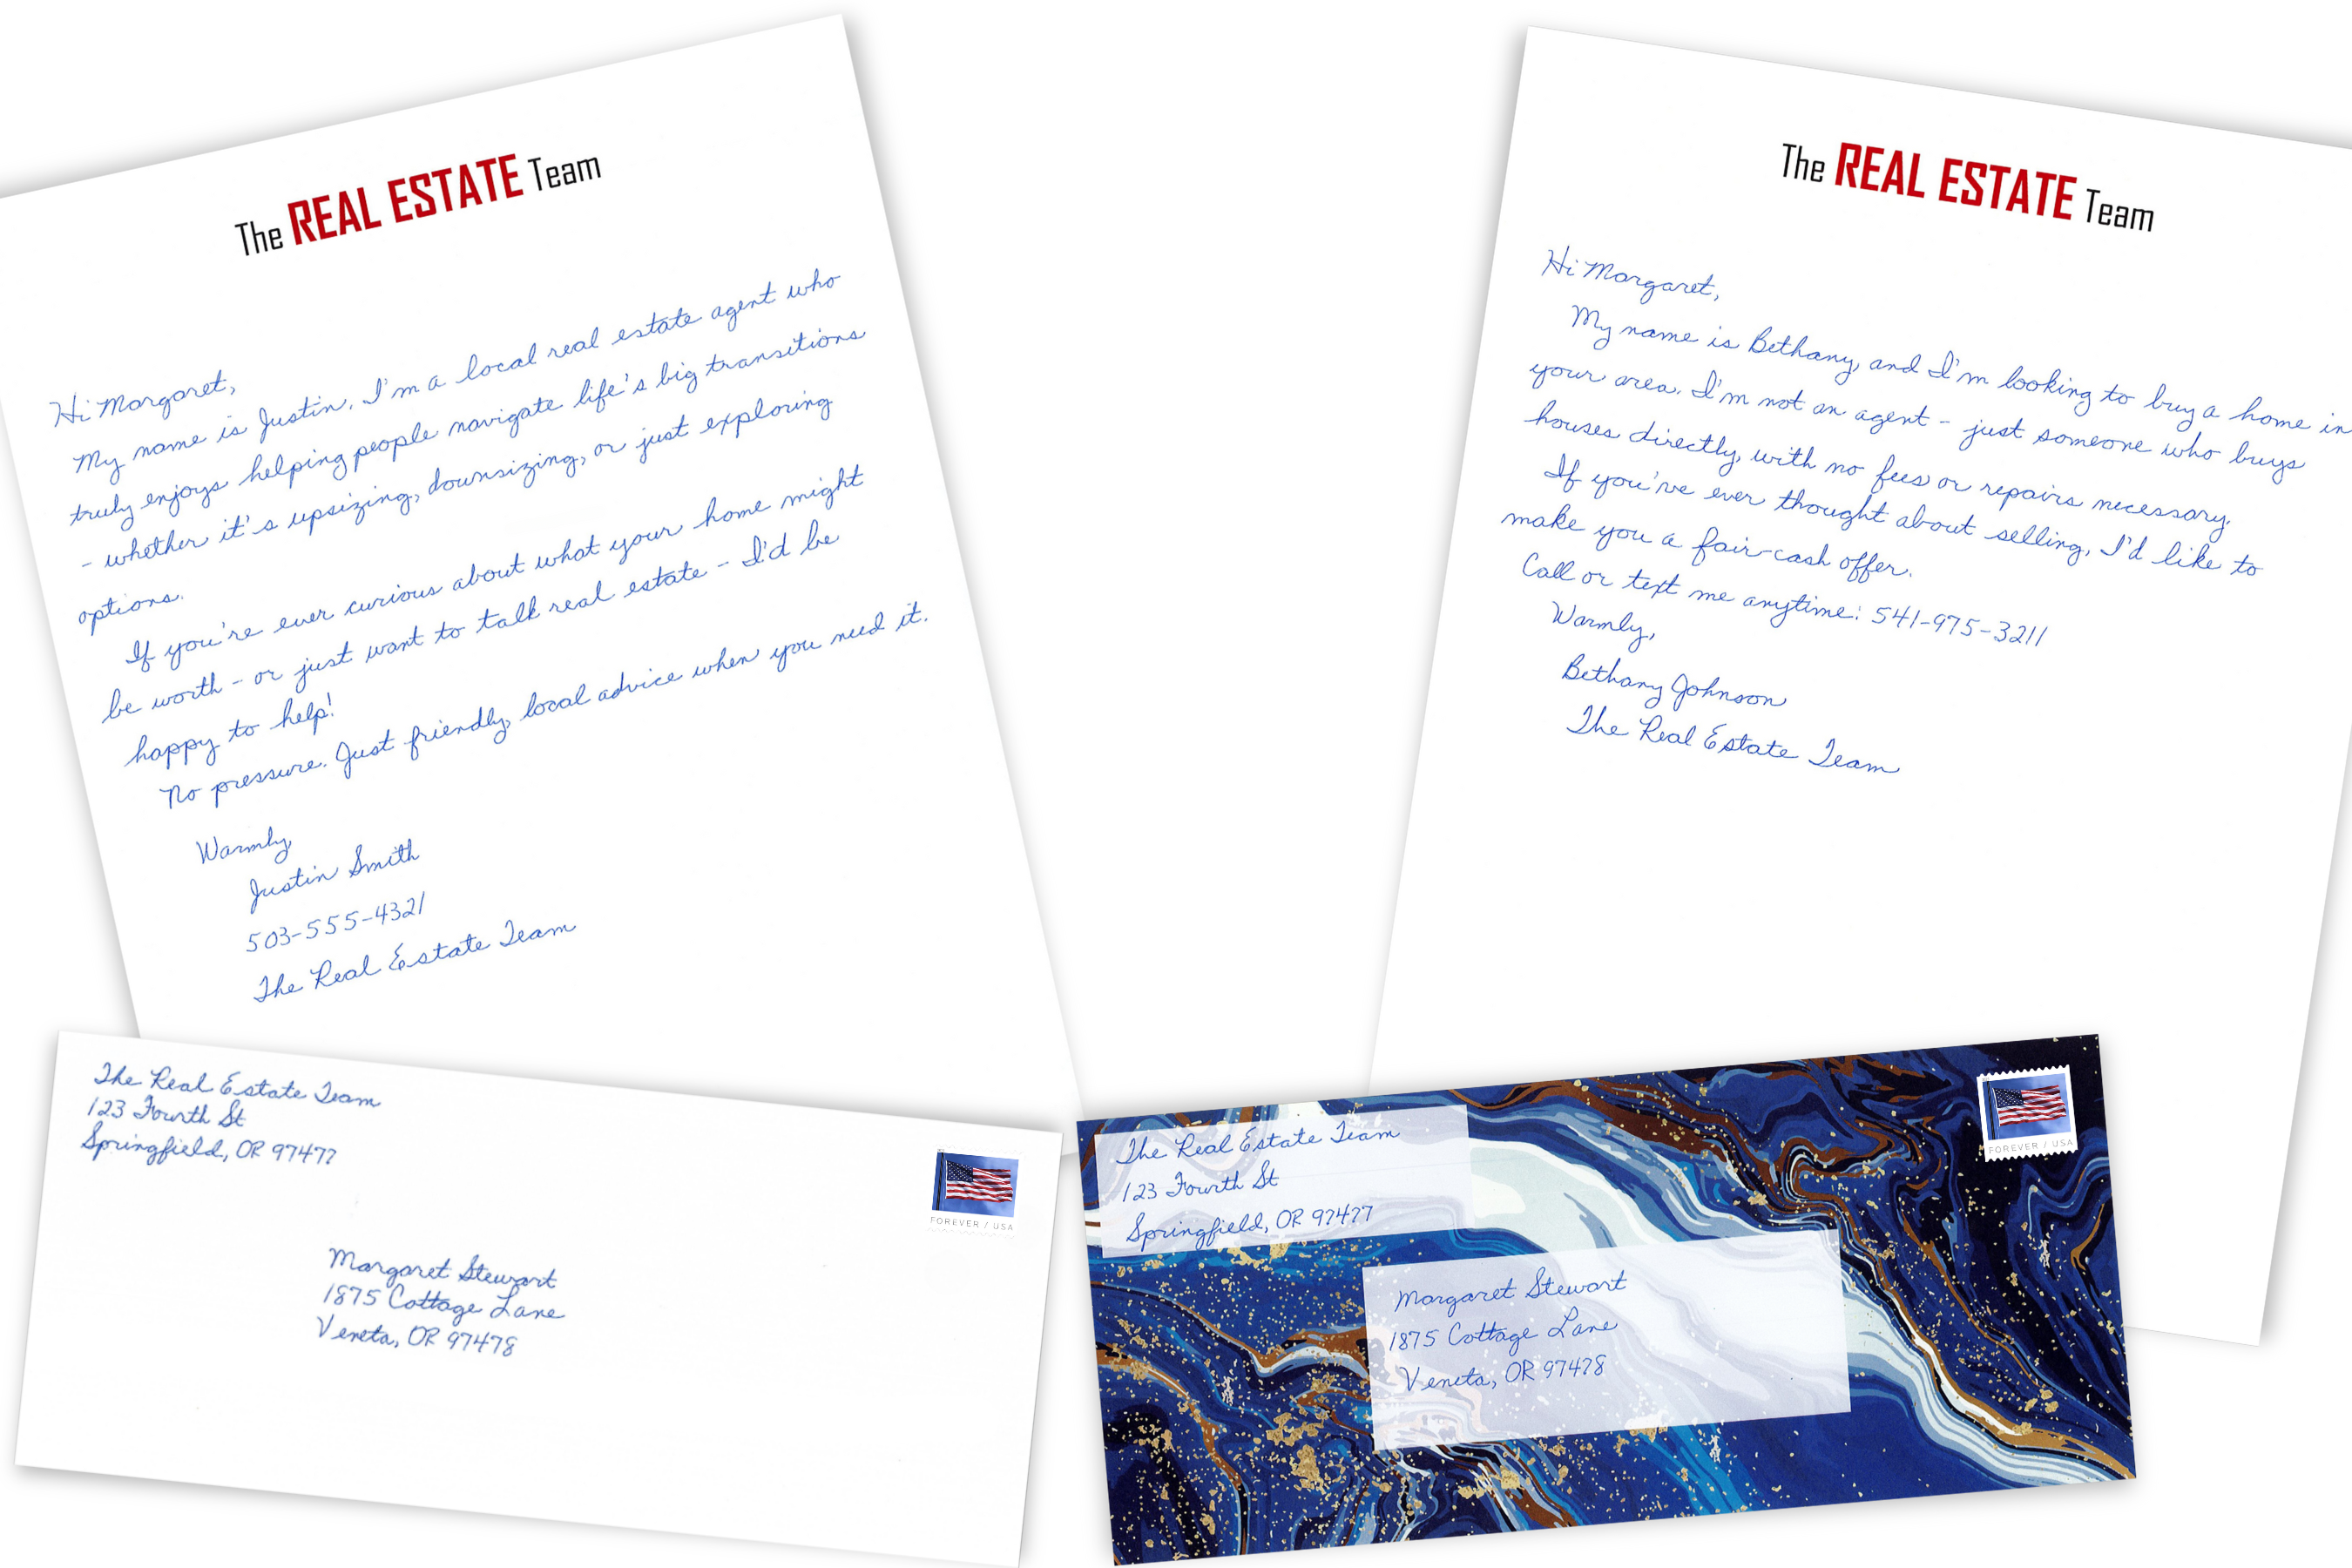 The REAL ESTATE Team
Hi Margaret,
My name is Justin. I'm a local real estate agent who
truly enjoys helping people navigate life's big transitions
- whether it's upsizing, downsizing, or just exploring
options.
If you're ever curious about what your home might
be worth - or just want to talk real estate - I'd be
happy to help!
No pressure. Just friendly, local advice when you need it.
Warmly,
Justin Smith
503-555-4321
The Real Estate Team
The REAL ESTATE Team
Hi Margaret,
My name is Bethany, and I'm looking to buy a home in
your area. I'm not an agent - just someone who buys
houses directly, with no fees or repairs necessary.
If you've ever thought about selling, I'd like to
make you a fair cash offer.
Call or text me anytime: 541-975-3211
Warmly,
Bethany Johnson
The Real Estate Team
The Real Estate Team
123 Fourth St
Springfield, OR 97477
FOREVER / USA
Margaret Stewart
1875 Cottage Lane
Veneta, OR 97478
The Real Estate Team
123 Fourth St
Springfield, OR 97477
FOREVER / USA
Margaret Stewart
1875 Cottage Lane
Veneta, OR 97478